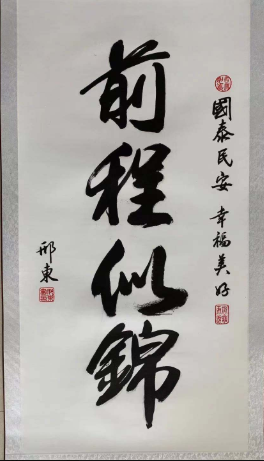 國泰民安 幸福美好
前程似錦
邢東